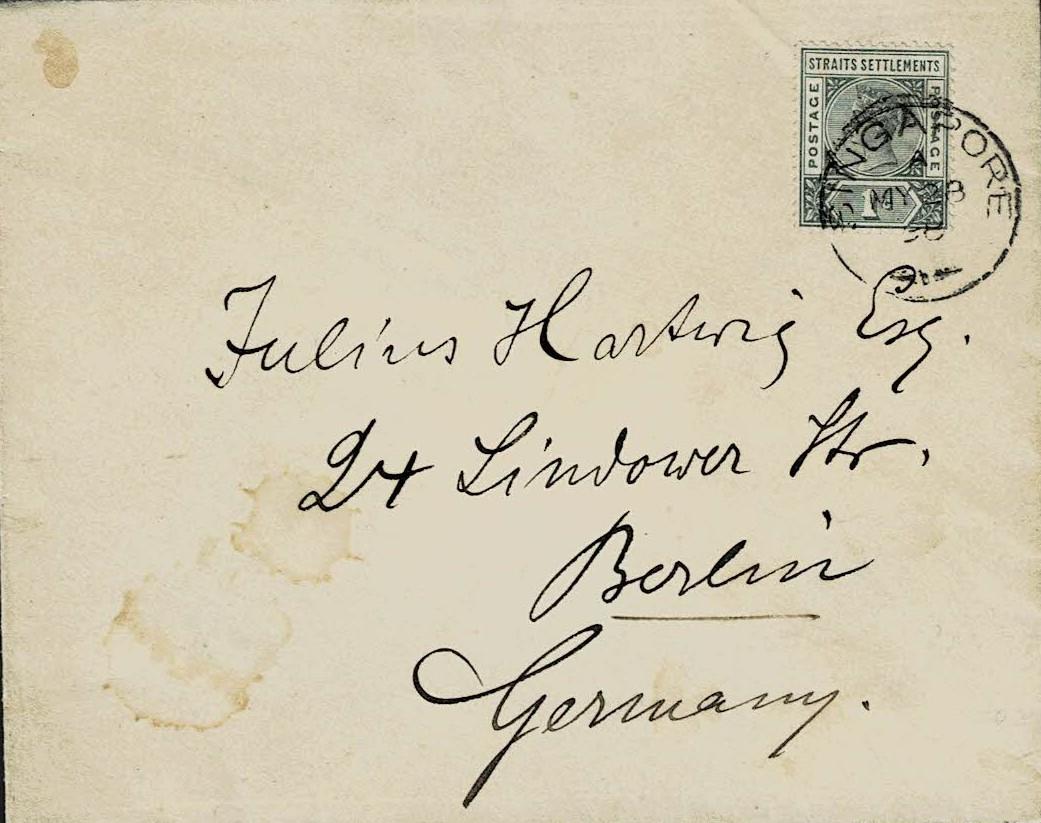 STRAITS SETTLEMENTS
POSTAGE
POSTAGE
SINGAPORE
A
MY 28
Julius Hartwig Esq.
24 Lindower Str.
Berlin
Germany.